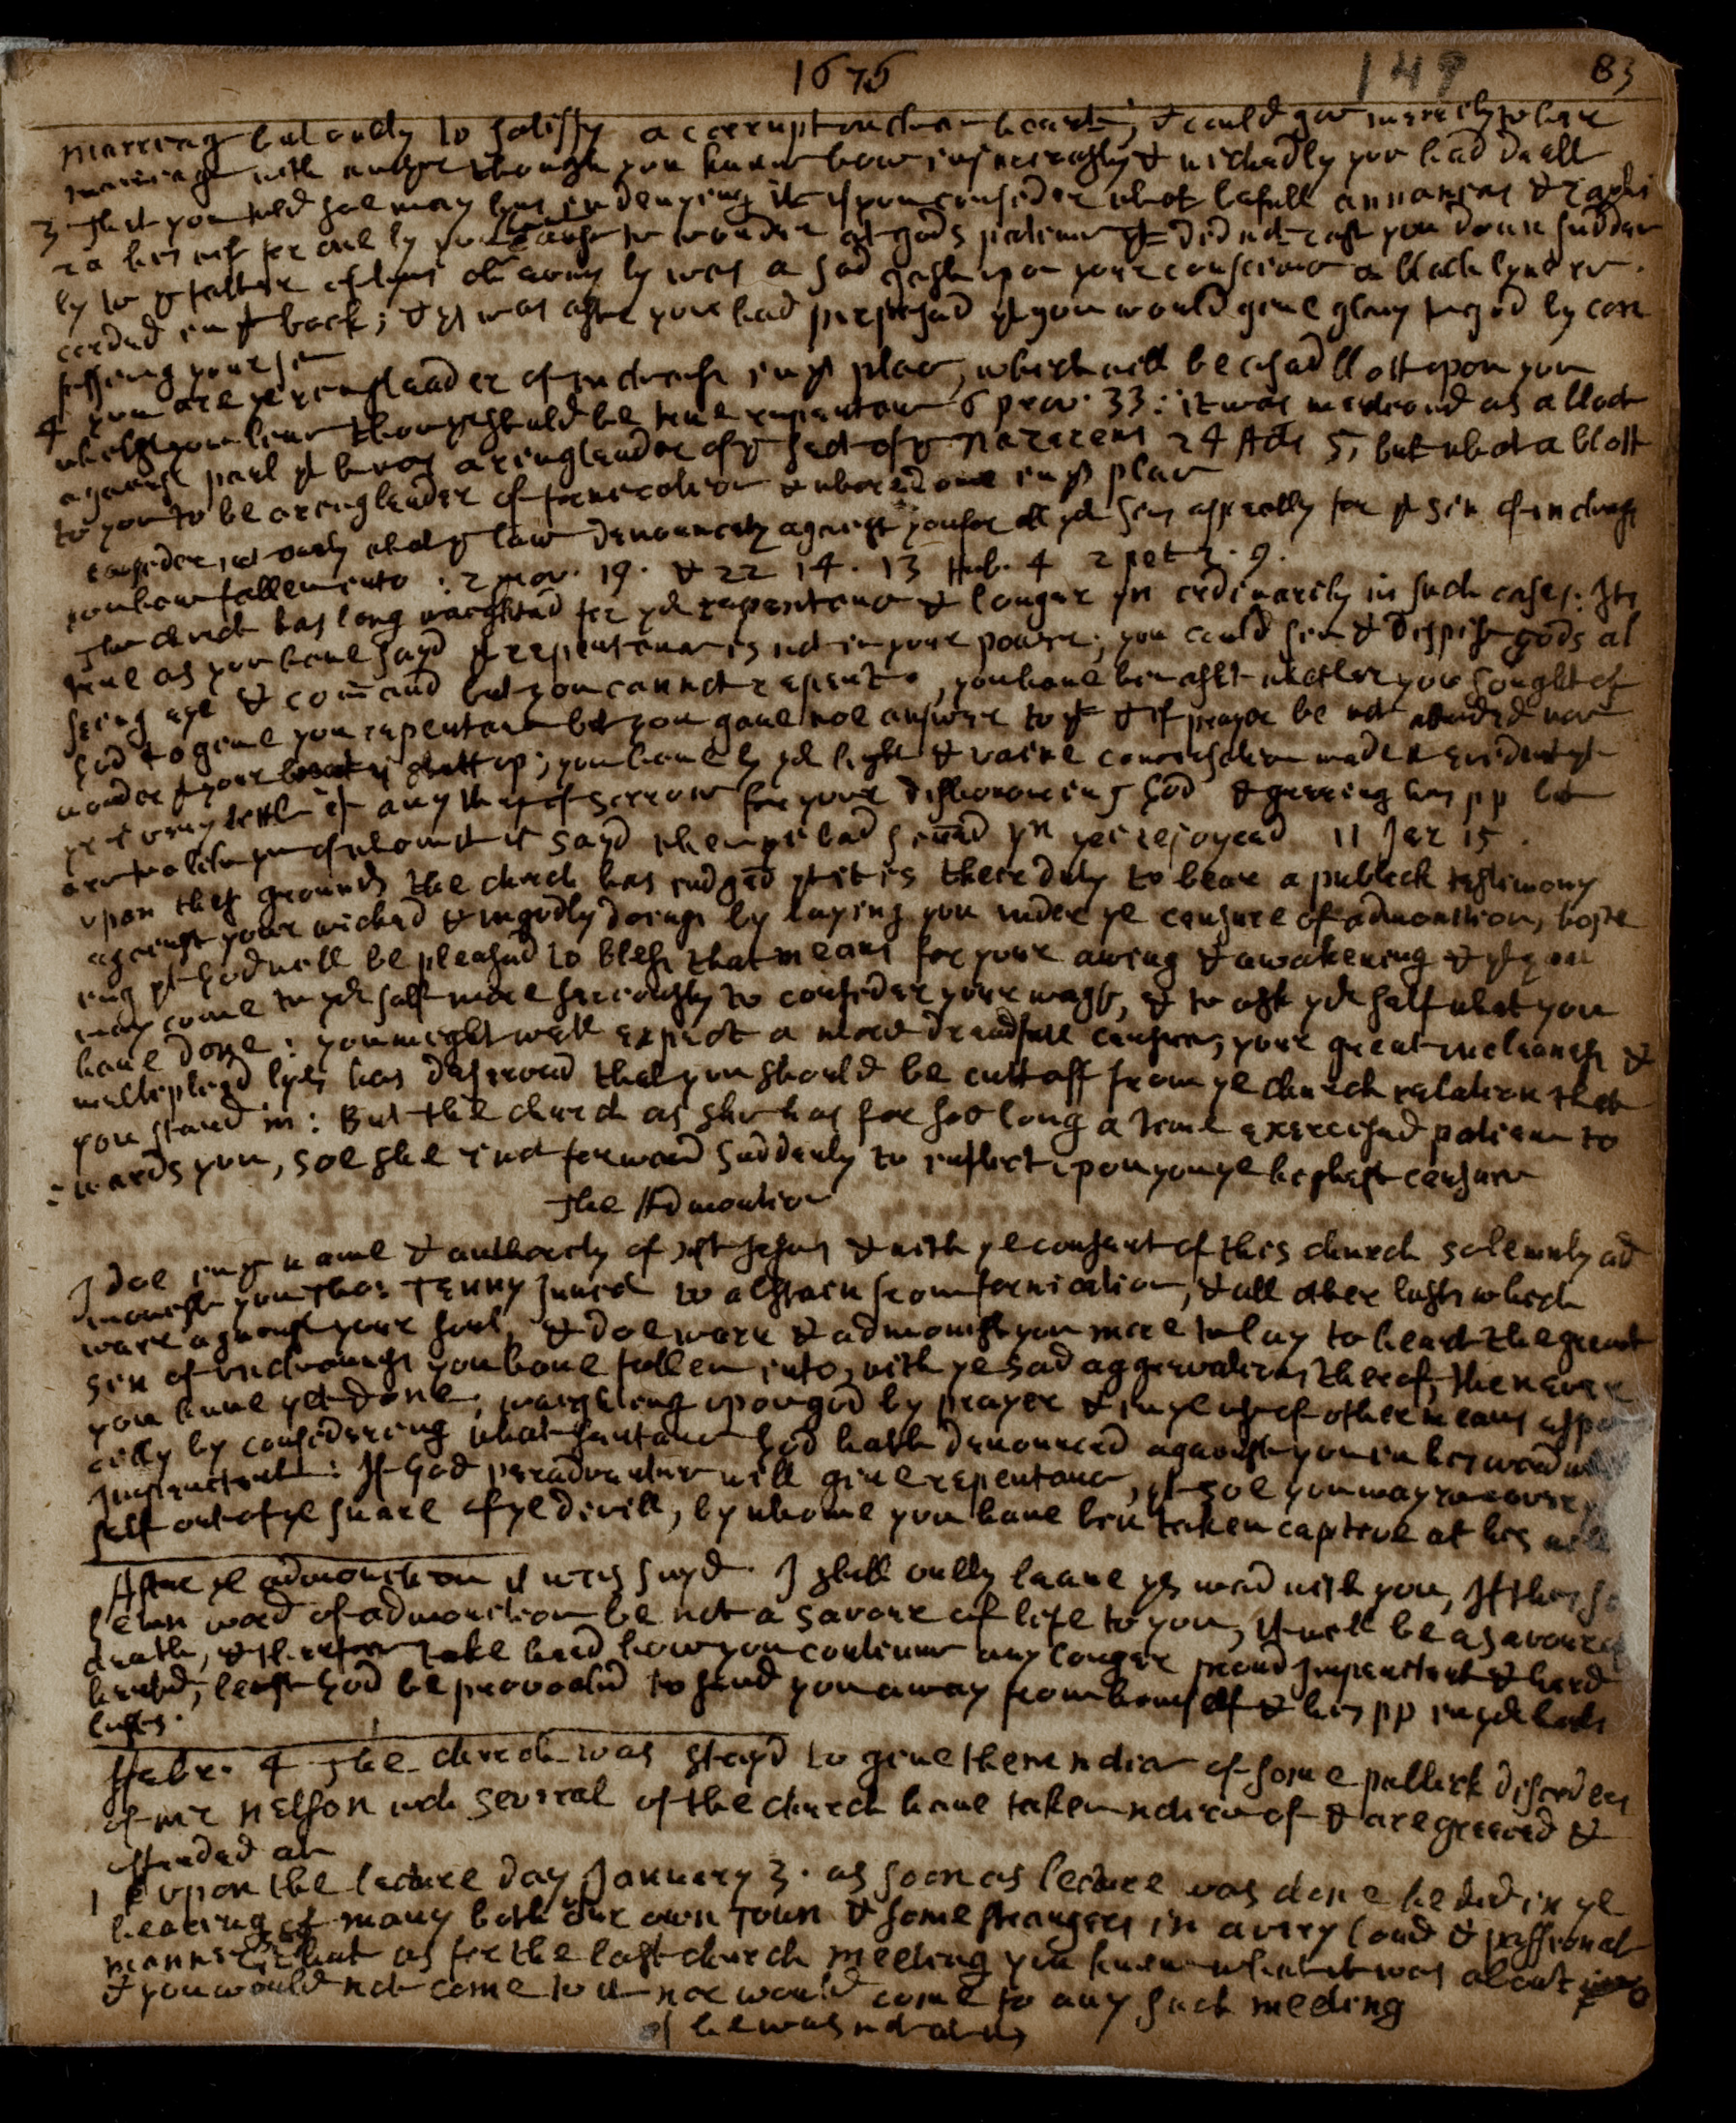 1675 149 83
marreng but ondly to satisfy a corrupt unclean heart; & could goe merrely to have
marriage with another though you knew how injuriously & wickedly you had dealt
3 That you told soe many lyes in denying it if you consider what befell annanias & Saphi
ra his wife for one ly you have cause to wonder at gods patience yt did not cast you down sudden
ly to ye father of lyes one ly was a sad gash upon your conscience a black lyne re
corded in ye back; & ys was after you had purposed yt you would give glory to god by con
fessing your sin
4 you are ye ringleader of uncleaness in ys place, which will be a sad blott upon you
whilst you live though yr should be true repentance 6 prov. 33: it was mentiond as a blott
against paul yt he was a ringleader of ye sect of ye Nazarens 24 Acts 5, but what a blott
to you to be a ringleader of fornication & whoredome in ys place
Consider not ondly what ye law denounceth against you for all yr sins espetially for ye sin of uncleaness
you have fallen into: 2 prov. 19. & 22 14. 13 Heb. 4 2 pet 2. 9.
The church has long waighted for yr repentance & longer yn ordinarily in such cases: Its
true as you have sayd yt repentance is not in your power; you could sin & despise gods al
seeing eye & comand but you cannot repent, you have ben askt whether you sought of
God to give you repentance but you gave noe answer to yt & if prayer be not attended noe
wonder yt your heart is shutt up; you have by yr light & vaine conversation made it evident yt
yr is very little if any thing of sorrow for your dishonouring God & greeving his pp but
are too like ym of whom it is sayd when yei had sinned yn yei rejoyced 11 Jer 15.
upon thes grounds the church has judged yt it is there duty to beare a publick testimony
against your wicked & ungodly doings by laying you under ye censure of admonition, hope
ing yt God will be pleased to bless that means for your awing & awakening & yt you
may come to yr self more seriously to consider your ways, & to ask yr self what you
have done: you might well expect a more dreadfull censure; your great uncleaness &
multeplyed lyes has deserved that you should be cutt off from ye church relation that
you stand in: But the church as she has for soe long a time exercised patience to
wards you, soe she is not forward suddenly to inflict upon you ye highest censure
The Admonition
I doe in ye name & authority of xst Jesus & with ye consent of this church solemnly ad
monish you Thos: Tenny Junr to abstain from fornication, & all other lusts which
warr against your soul, & doe warn & admonish you more to lay to heart the great
sin of uncleaness you have fallen into, with ye sad aggrevations thereof, then ever
you have yet done; waighting upon god by prayer & in ye use of other means espe
cially by considering what sentance God hath denounced against you in his word
Impenitent: If God peradventure will give repentance, yt soe you may recover yr
self out of ye snare of ye divill, by whome you have ben taken captive at his will
After ye admonition it was sayd. I shall ondly leave ys word with you, If this so
lemn word of admonition be not a savour of life to you, it will be a savour of
death, & therefore take heed how you continue any longer proud Impenitent & hard
hearted, least God be provoaked to send you away from himself & his pp in yr
lusts.
Febr. 4 The church was stayd to give them notice of some publick disorders
of mr Nelson wch severall of the church have taken notice of & are greeved &
offended at
1 upon the lecture day January 3. as soon as lecture was done he did in ye
hearing of many both of our own Town & some strangers in a very loud & passionat
manner that as for the last church meeting you knew what it was about
& you would not come to it nor would come to any such meeting
if he was not at it